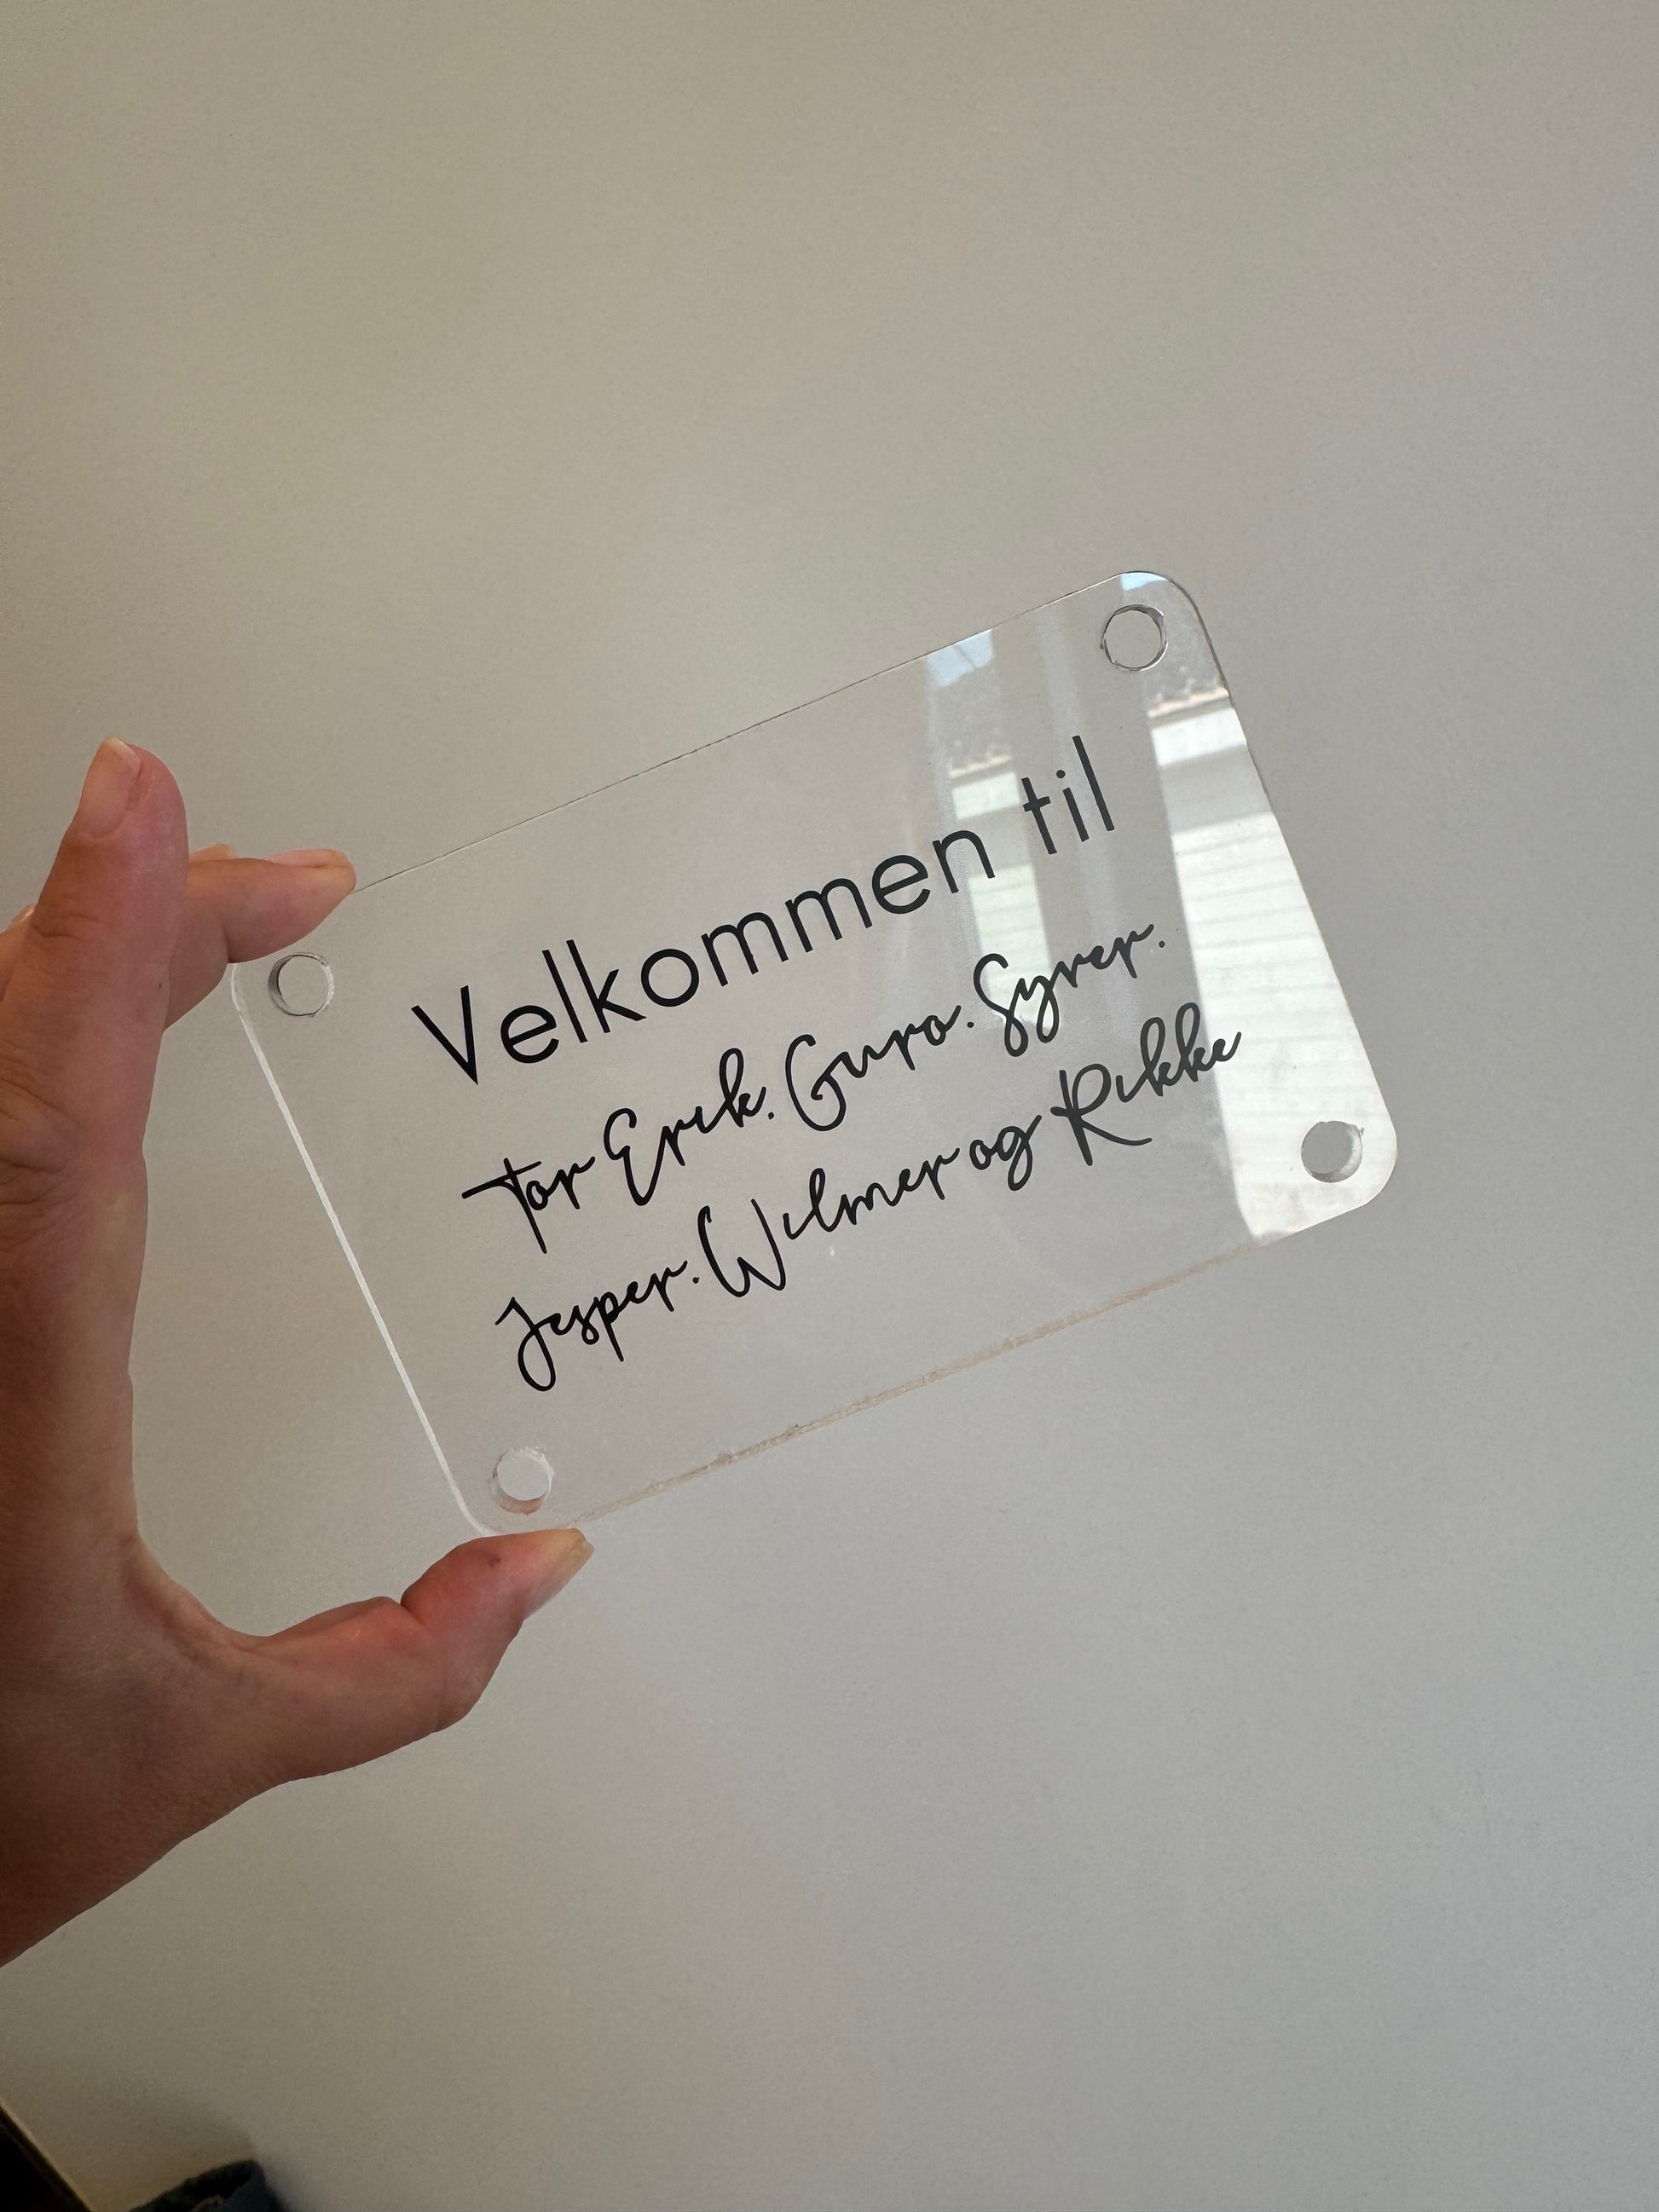 Velkommen til
Tor Erik. Guro. Syver.
Jesper. Wilmer og Rikke